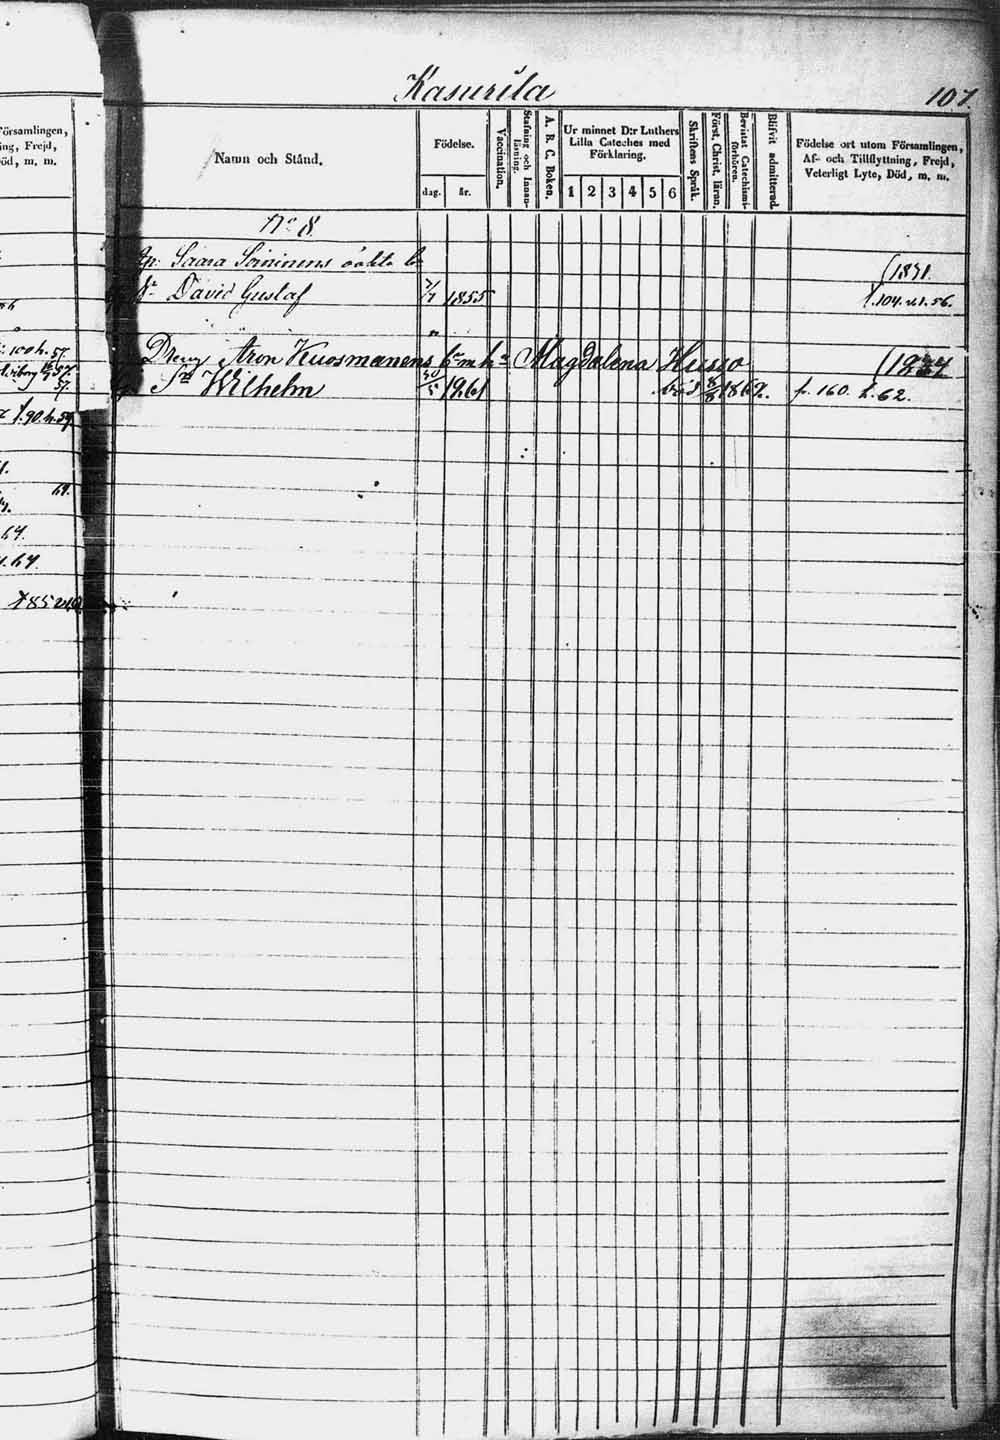 Kasurila
107.
Församlingen,
ing, Frejd,
öd, m. m.
Namn och Stånd.
Födelse.
dag. år.
Vaccination.
Stafning och Innanläsning.
A. B. C. Boken.
Ur minnet D:r Luthers
Lilla Cateches med
Förklaring.
1 2 3 4 5 6
Skriftens Språk.
Först. Christ. läran.
Bevistat Catechismiförhören.
Blifvit admitterad.
Födelse ort utom Församlingen,
Af- och Tillflyttning, Frejd,
Veterligt Lyte, Död, m. m.
No 8.
Saara Soininens oäkta b
(1831.
Sr David Gustaf 1855
f. 104. u. l. 56.
Dreng Aron Kuosmanens Magdalena Husso
Sn Wilhelm 1861 död 8/8 1862. p. 160. h. 62.
100 h. 57.
57.
f. 90. h. 59.
64.
64.